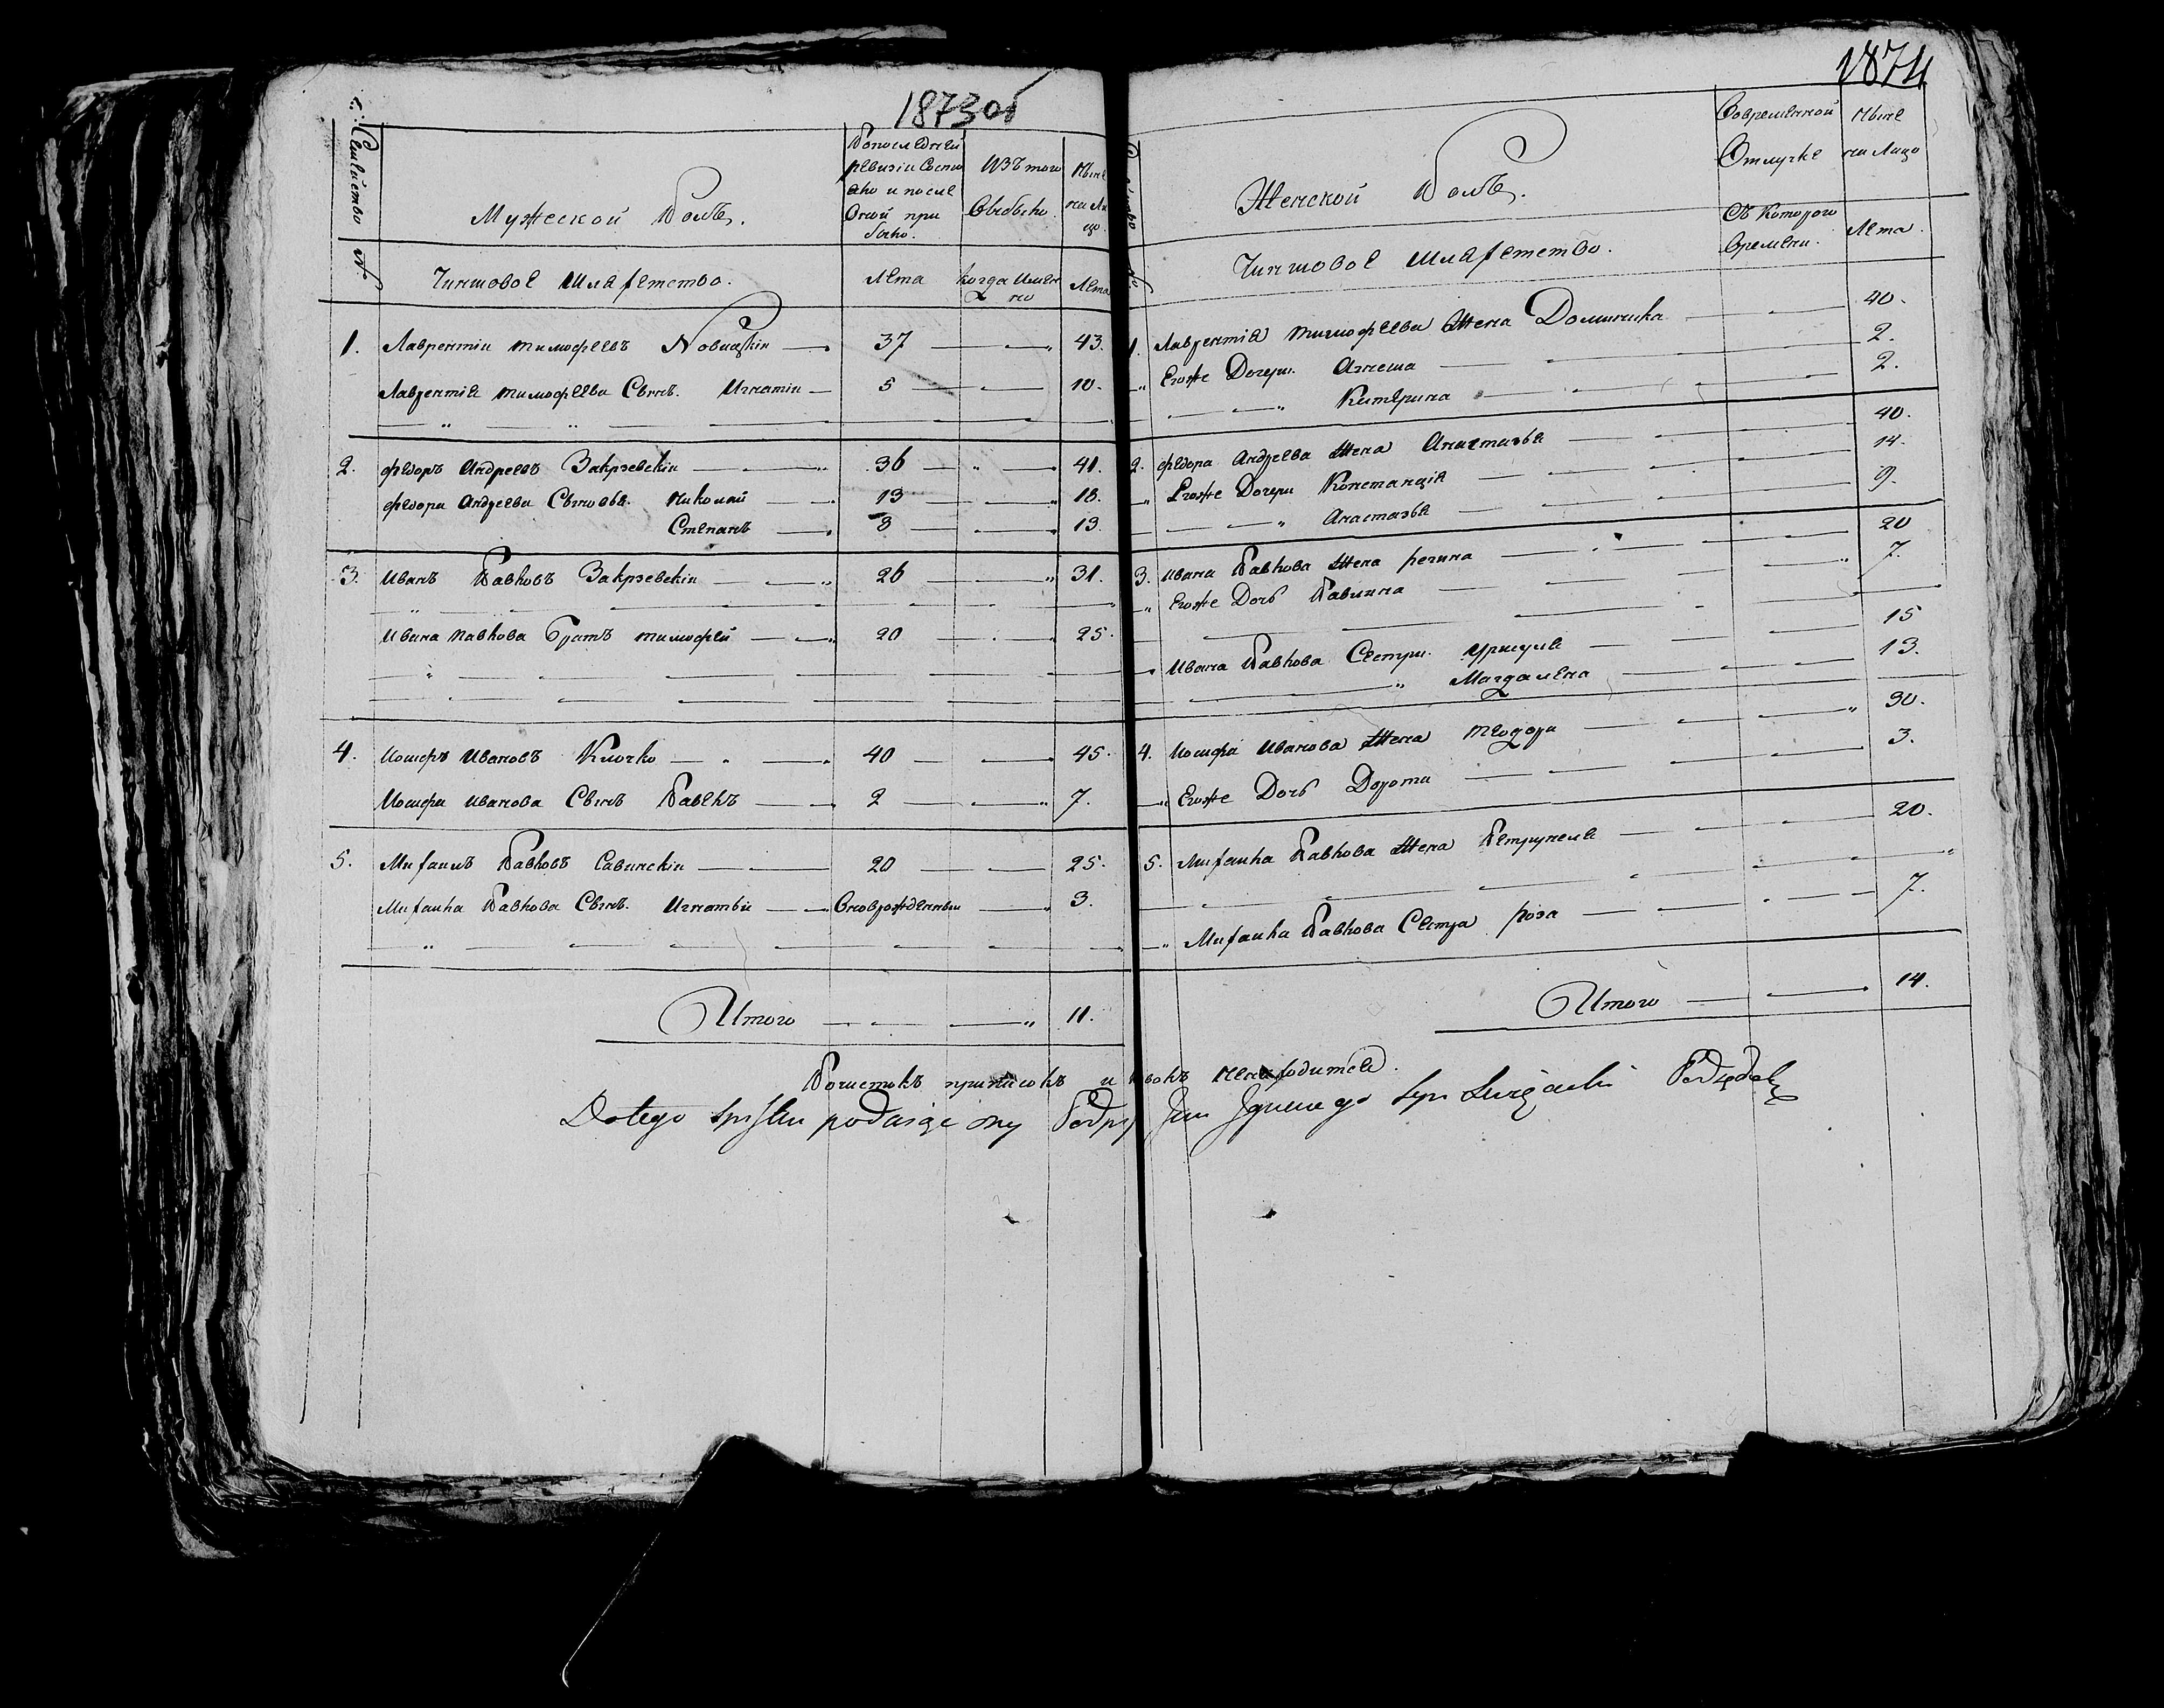 1873об
Семейство №
Мужеской Полъ.
Чиншовое Шляхетство.
Попоследней ревизіи Состояло и после Оной прибыло.
Лета
Изъ того Выбыло
Когда Именно
Ныне на Лицо
Лета
1. Лаврентіи тимофеевъ Новицкіи 37 43.
Лаврентіа тимофеева Сынъ. Игнатіи 5 10.
2. федоръ Андреевъ Закржевскіи 36 41.
федора Андреева Сыновья. Николай 13 18.
Степанъ 8 13.
3. Иванъ Павловъ Закржевскіи 26 31.
Ивана павлова братъ тимофей 20 25.
4. Иосифъ Ивановъ Клочко 40 45.
Иосифа Иванова Сынъ Павелъ 2 7.
5. Михаилъ Павловъ Савинскіи 20 25.
Михаила Павлова Сынъ. Игнатіи Вноврожденныи 3.
Итого 11.
1874
Женской Полъ.
Чиншовое Шляхетство.
Вовременной Отлучке
Съ Которого времени.
Ныне на Лицо
Лета.
1. Лаврентіа тимофеева Жена Доминика 40.
Егоже Дочери. Агнеша 2.
Катерина 2.
2. федора Андреева Жена Анастазья 40.
Егоже Дочери Констанція 14.
Анастазья 9.
3. Ивана Павлова Жена регина 20
Егоже Дочь Павлина 7.
Ивана Павлова Сестры. Уршуля 15
Магдалена 13.
4. Иосифа Иванова Жена теодора 30.
Егоже Дочь Дорота 3.
5. Михаила Павлова Жена Петрунеля 20.
Михаила Павлова Сестра роза 7.
Итого 14.
Почистокъ приписокъ и ненаходится.
Dotego Spisku podaiące my Jan Ignacego Syn